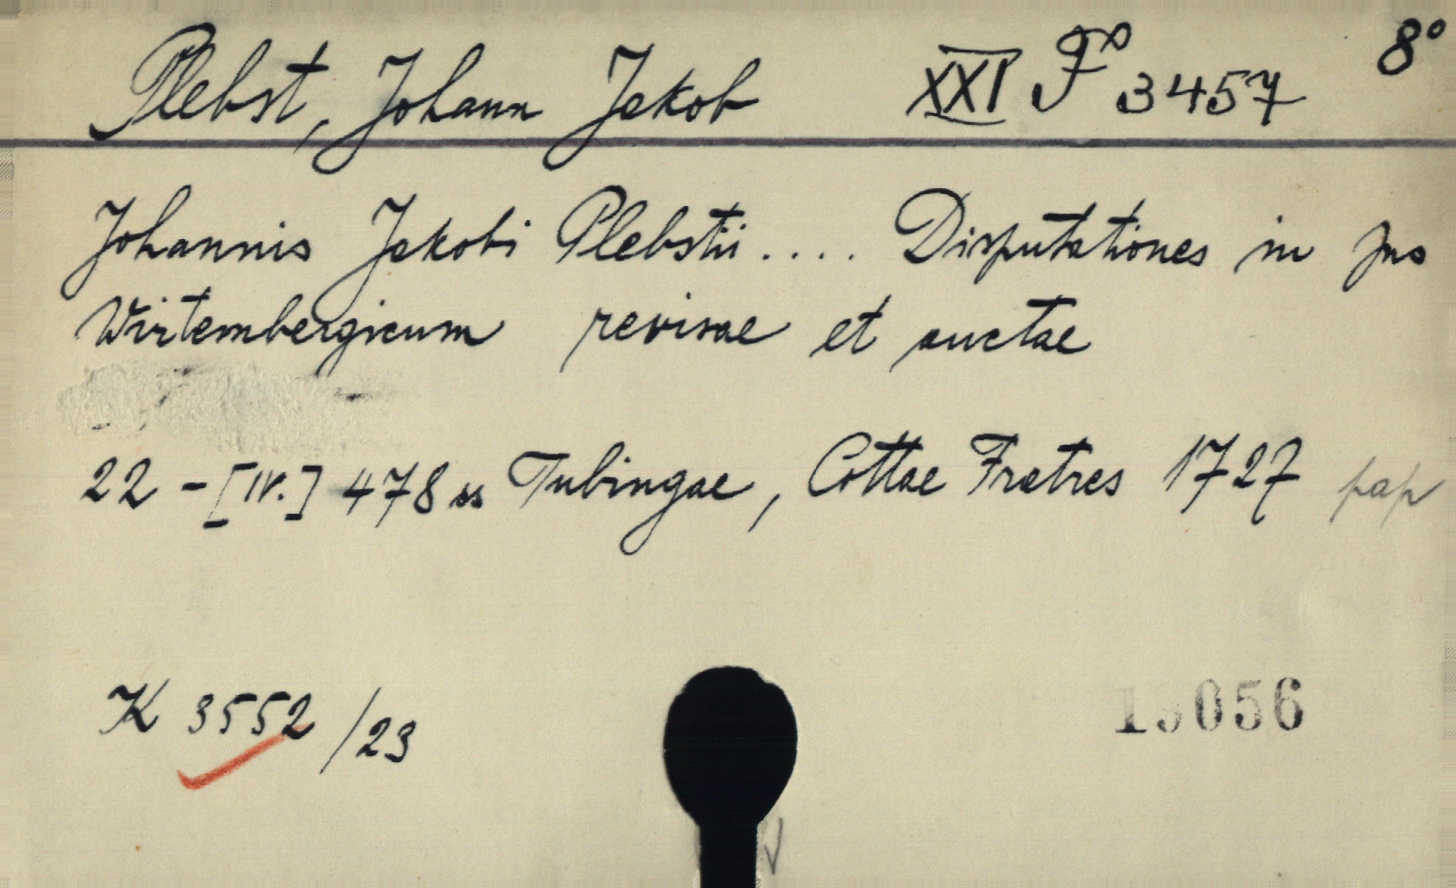 Plebst, Johann Jakob XXI F° 3457 8°
Johannis Jakobi Plebstii .... Disputationes in Jus
Wirtembergicum revisae et auctae
22 - [IV.] 478 ss Tubingae, Cottae Fratres 1727 pap
K 3552 /23
056